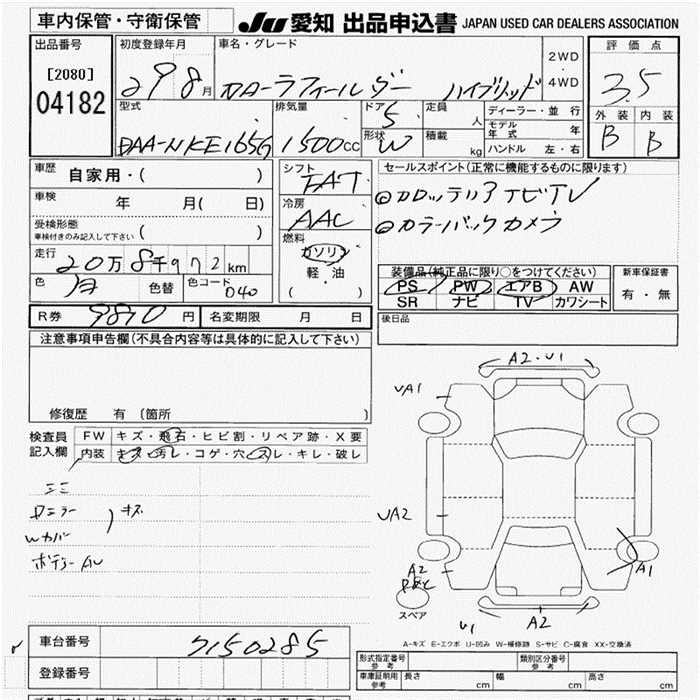 車内保管・守衛保管
JU 愛知 出品申込書 JAPAN USED CAR DEALERS ASSOCIATION
出品番号
[2080]
04182
初度登録年月
29 8月
車名・グレード
カローラフィールダー ハイブリッド
2WD・4WD
評価点
3.5
外装 内装
B B
型式
DAA-NKE165G
排気量
1500cc
ドア 5
形状 W
定員 人
積載 kg
ディーラー・並行
モデル年式 年
ハンドル 左・右
車歴 自家用・( )
車検 年 月( 日)
受検形態
車検付きのみ記入して下さい ( )
走行 20万8千972km
色 色替 色コード 040
シフト FAT
冷房 AAC
燃料 ガソリン
軽・油
( )
セールスポイント(正常に機能するものに限ります)
◎カロッテリア ナビTV
◎カラーバックカメラ
装備品(純正品に限り○をつけてください)
PS PW エアB AW
SR ナビ TV カワシート
新車保証書
有・無
R券 9890円 名変期限 月 日
後日品
注意事項申告欄(不具合内容等は具体的に記入して下さい)
修復歴 有 (箇所 )
検査員記入欄
FW キズ・飛石・ヒビ割・リペア跡・X要
内装 キズ・汚レ・コゲ・穴・スレ・キレ・破レ
キズ
Wカバー
ボデーAU
A2・U1
UA1
UA2
A2
A1
スペア
U1 A2
A-キズ E-エクボ U-凹み W-補修跡 S-サビ C-腐食 XX-交換済
車台番号 7150285
登録番号
形式指定番号 参考
類別区分番号 参考
車庫証明用 参考 長さ cm 幅 cm 高さ cm